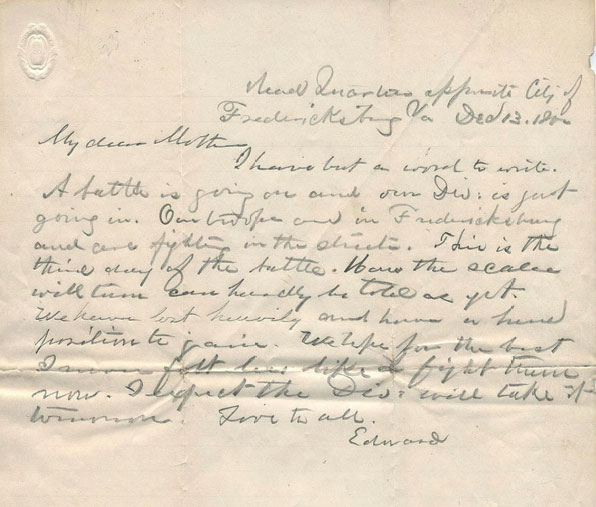 Head Quarters opposite City of
Fredericksburg Va Dec 13. 1862
My dear Mother
I have but a word to write.
A battle is going on and our Div: is just
going in. Our troops are in Fredericksburg
and are fighting in the streets. This is the
third day of the battle. How the scales
will turn can hardly be told as yet.
We have lost heavily and have a hard
position to gain. We hope for the best
I never felt less like a fight than
now. I expect the Div: will take it
tomorrow. Love to all.
Edward